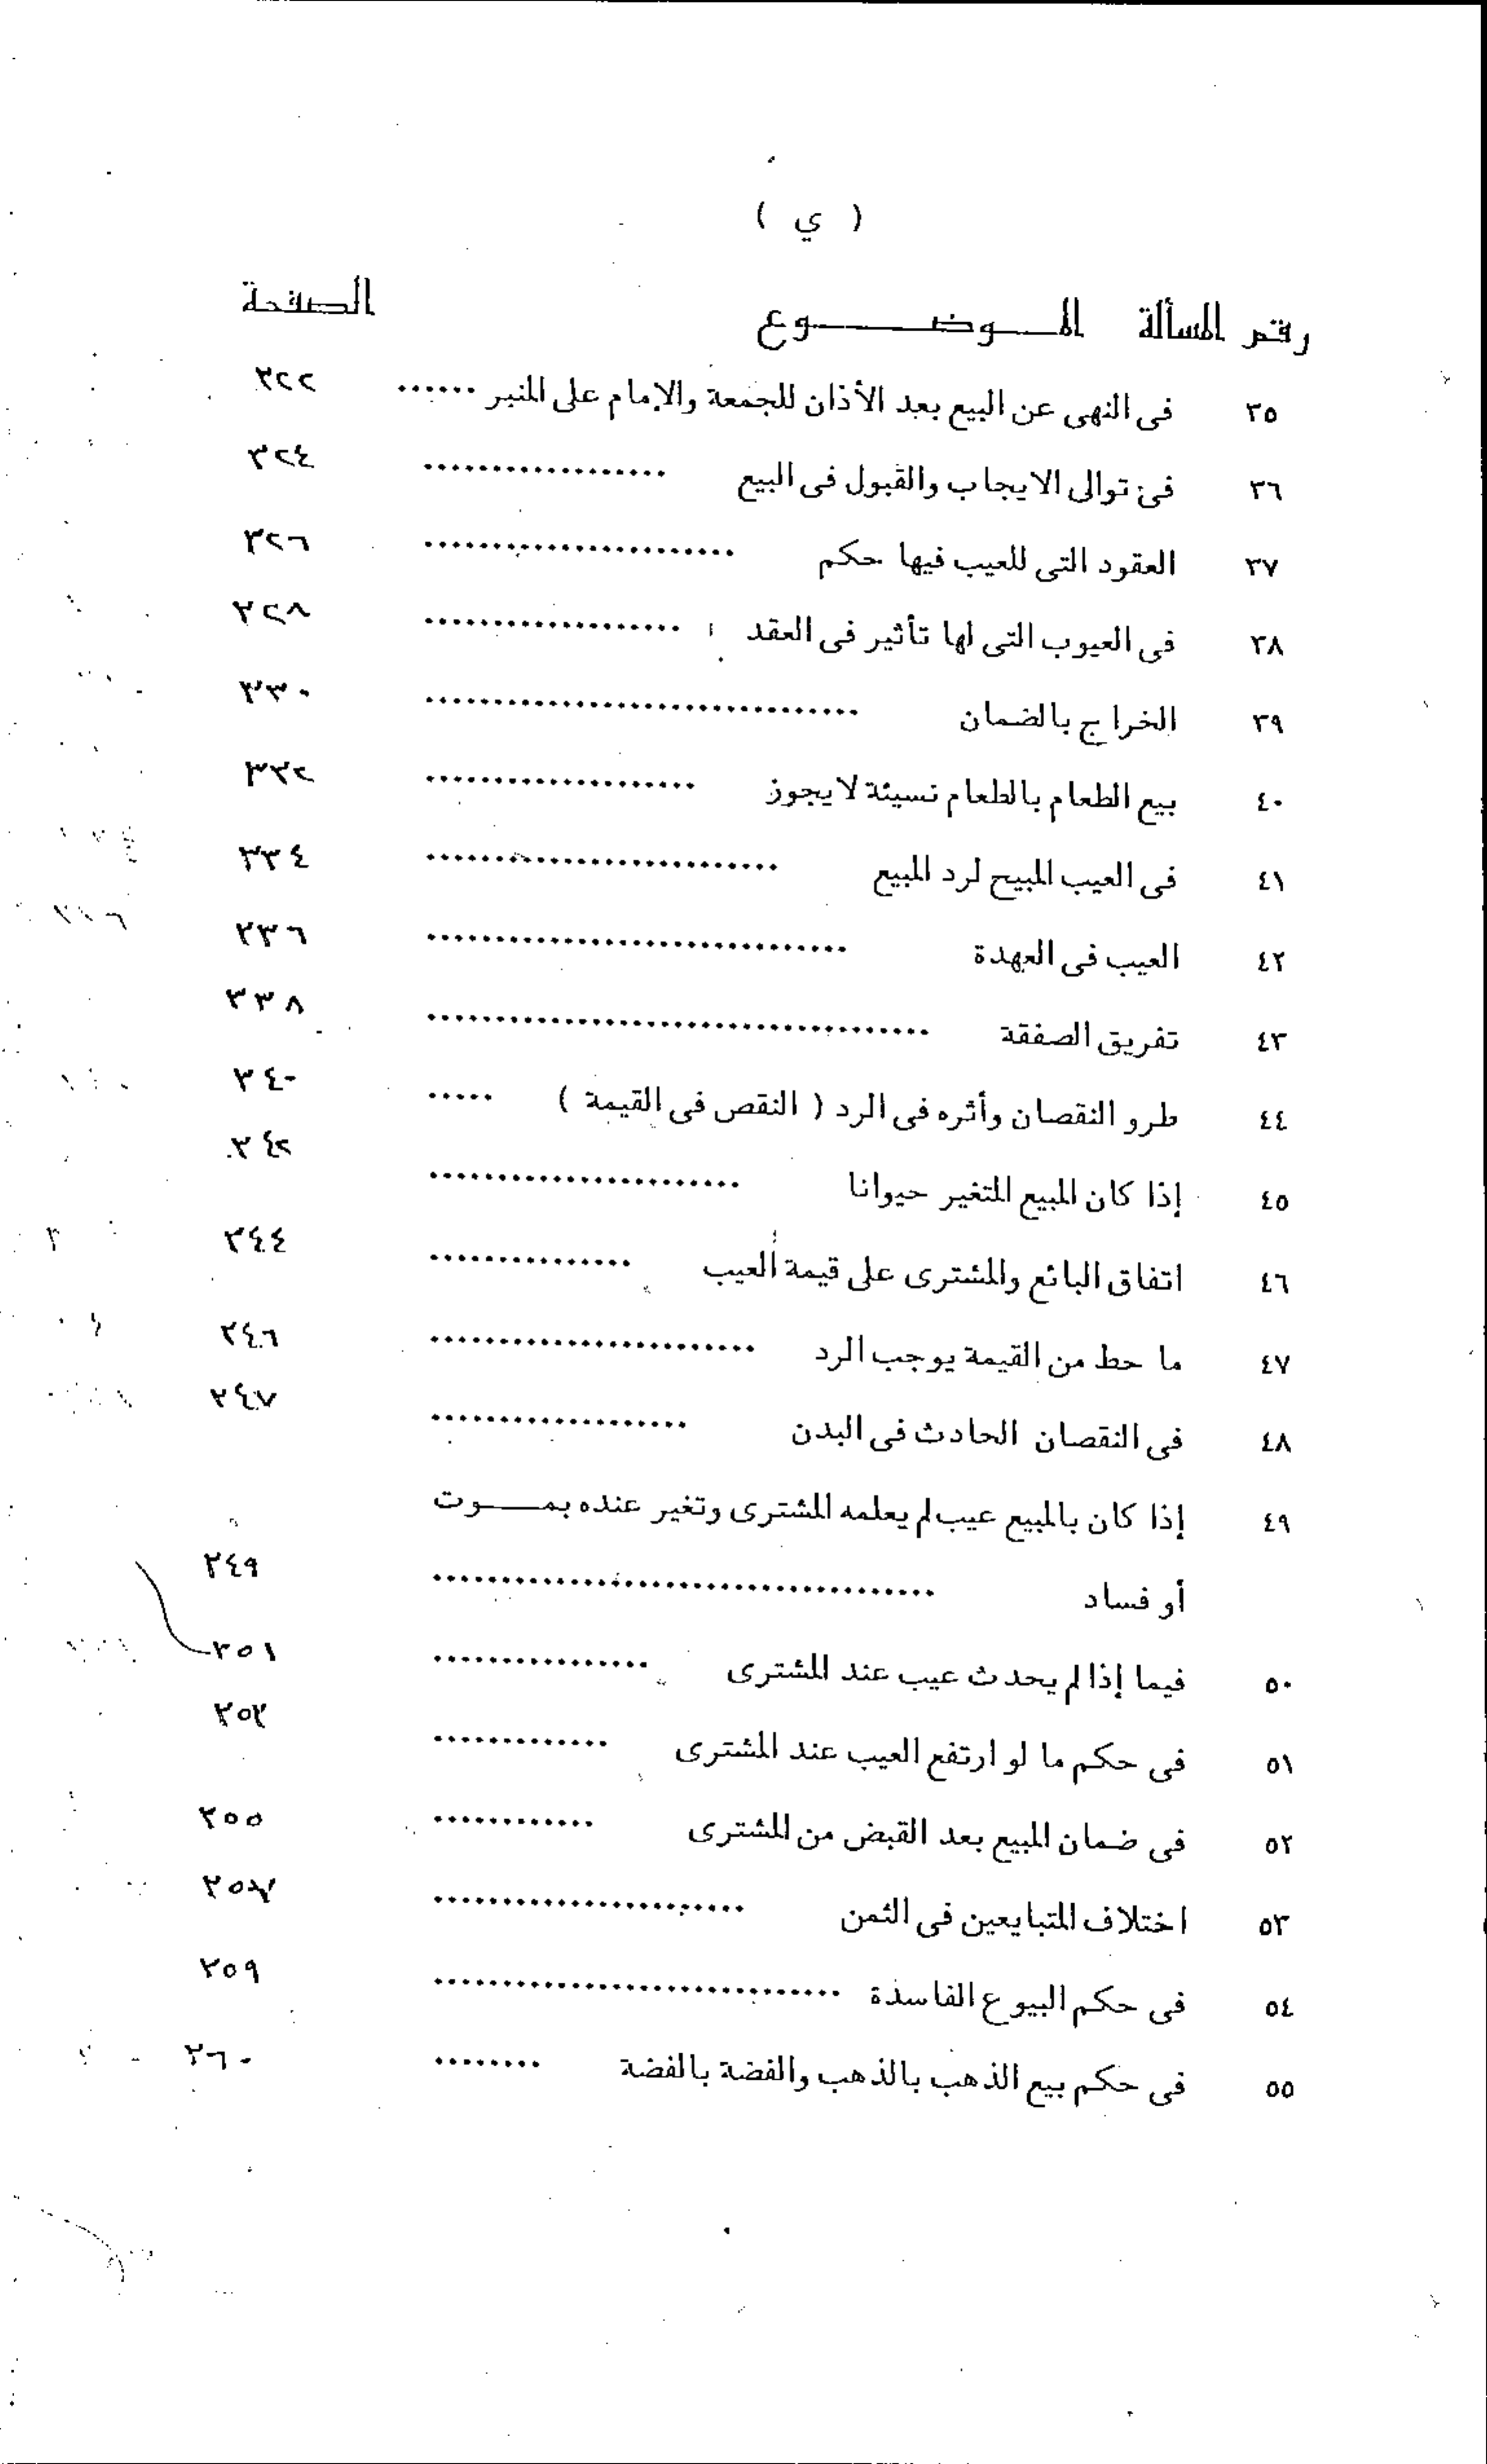 ( ي )
رقم المسألة الموضـــــوع الصفحة
٣٥ فى النهى عن البيع بعد الأذان للجمعة والإمام على المنبر ...... ٣٢٢
٣٦ فى توالى الايجاب والقبول فى البيع .................. ٣٢٤
٣٧ العقود التى للعيب فيها حكم ....................... ٣٢٦
٣٨ فى العيوب التى لها تأثير فى العقد ................... ٣٢٨
٣٩ الخراج بالضمان ................................ ٣٣٠
٤٠ بيع الطعام بالطعام نسيئة لا يجوز .................... ٣٣٢
٤١ فى العيب المبيح لرد المبيع .......................... ٣٣٤
٤٢ العيب فى العهدة ............................... ٣٣٦
٤٣ تفريق الصفقة ..................................... ٣٣٨
٤٤ طرو النقصان وأثره فى الرد ( النقص فى القيمة ) ..... ٣٤٠
٤٥ إذا كان المبيع المتغير حيوانا ....................... ٣٤٢
٤٦ اتفاق البائع والمشترى على قيمة العيب ............... ٣٤٤
٤٧ ما حط من القيمة يوجب الرد ........................ ٣٤٦
٤٨ فى النقصان الحادث فى البدن ................... ٣٤٧
٤٩ إذا كان بالمبيع عيب لم يعلمه المشترى وتغير عنده بمـــوت
أو فساد ..................................... ٣٤٩
٥٠ فيما إذا لم يحدث عيب عند المشترى ................ ٣٥١
٥١ فى حكم ما لو ارتفع العيب عند المشترى ............. ٣٥٣
٥٢ فى ضمان المبيع بعد القبض من المشترى ............ ٣٥٥
٥٣ اختلاف المتبايعين فى الثمن ....................... ٣٥٧
٥٤ فى حكم البيوع الفاسدة .............................. ٣٥٩
٥٥ فى حكم بيع الذهب بالذهب والفضة بالفضة ........ ٣٦٠